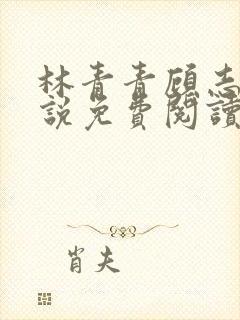 林青青顾志
說免費閱讀
肖夫